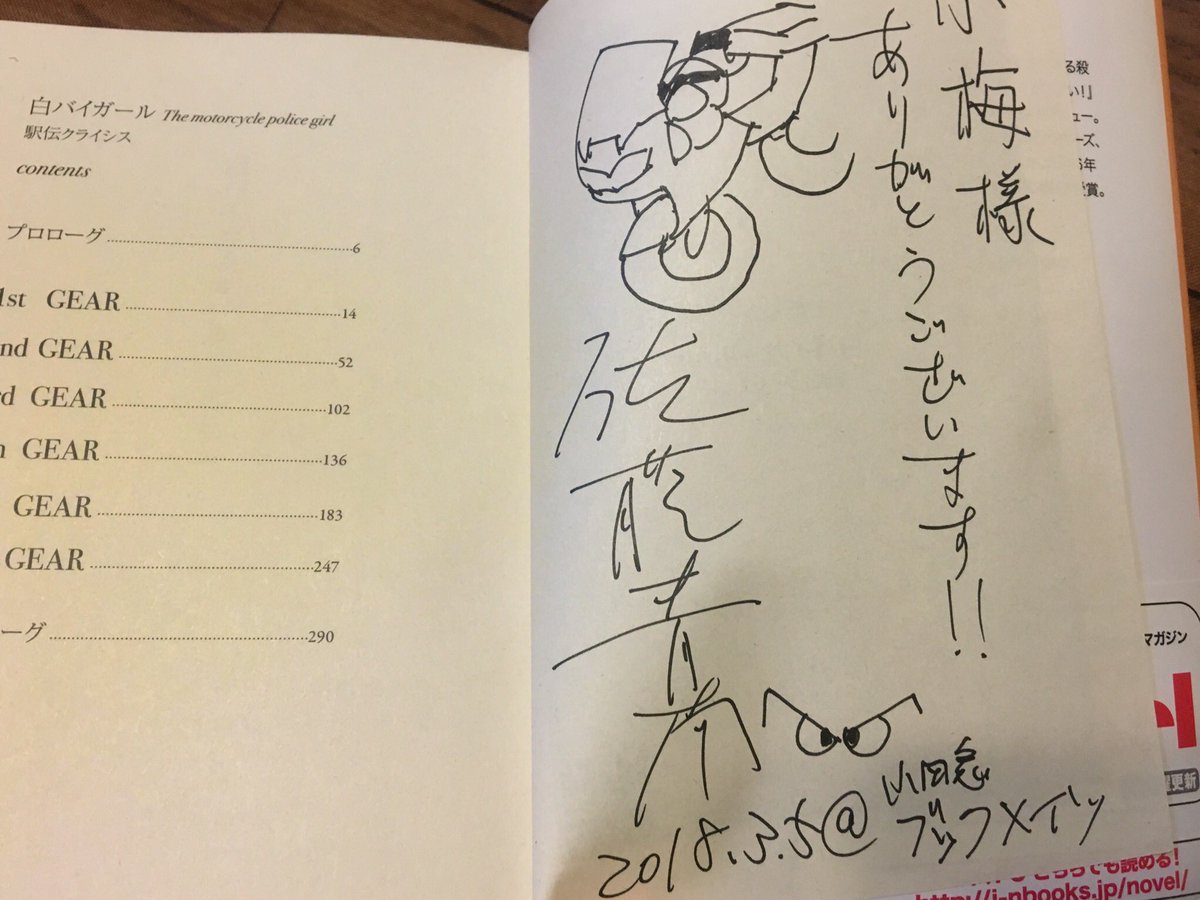 白バイガール The motorcycle police girl
駅伝クライシス
contents
プロローグ 6
1st GEAR 14
nd GEAR 52
rd GEAR 102
GEAR 136
GEAR 183
GEAR 247
ーグ 290
小梅様
ありがとうございます!!
佐藤青南
2018.3.5@小田急
ブックメイツ
る殺
い!」
ュー。
ーズ、
年
賞。
マガジン
更新
でも読める!
http://j-nbooks.jp/novel/